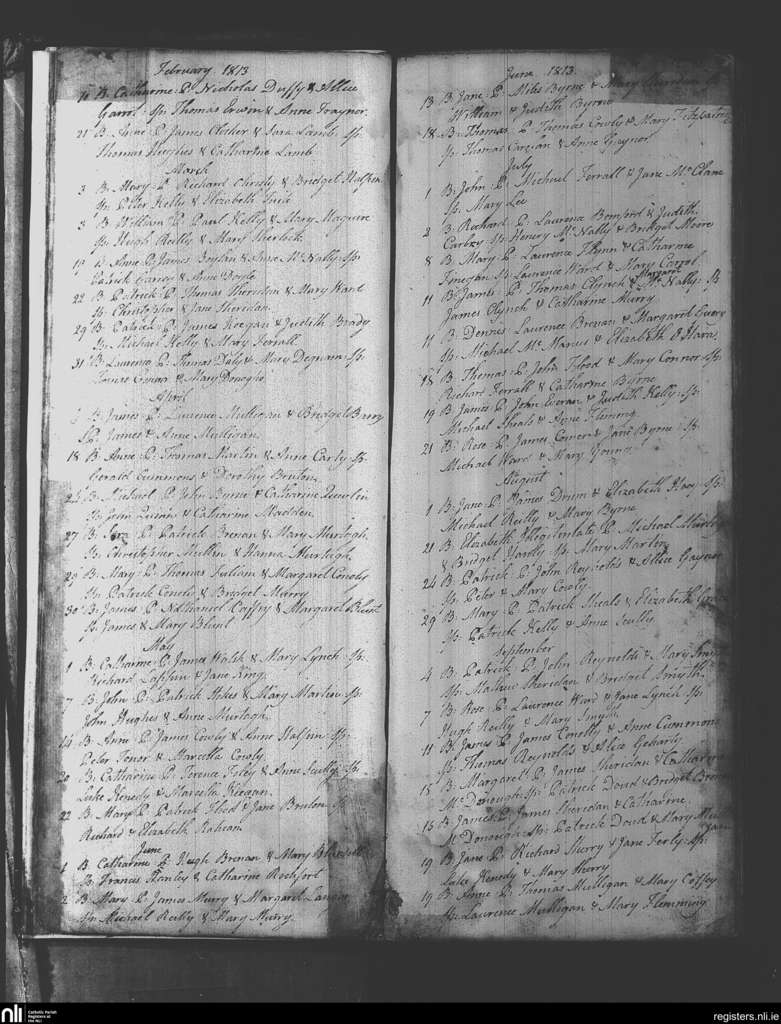 February 1813
B. Catharine P. Nicholas Duffy & Allice
Garrt. Sp. Thomas Erwin & Anne Traynor.
21 B. P. James & Sera Lamb. Sp.
Thomas Hughes & Catharine Lamb
March
3 B. Mary P. Richard Christy & Bridget Halfin
Sp. Peter Kelly & Elizabeth
B. William P. Paul Kelly & Mary Maguire
Sp. Hugh Reilly & Mary Sherlock
19 B. Anne P. James Boylan & Anne McNally. Sp.
Patrick & Anne Doyle
22 B. Patrick P. Thomas Sheridan & Mary Ward
Sp. Christopher & Jane Sheridan.
29 B. Patrick P. James Keegan & Judith Brady
Sp. Michael Kelly & Mary Ferrall
31 B. Laurence P. Thomas Daly & Mary Degnam Sp.
& Mary Donagho
April
B. James P. Laurence Mulligan & Bridget Barry
Sp. James & Anne Mulligan.
18 B. Anne P. Thomas Martin & Anne Carty Sp.
Gerald Cummons & Dorothy Bruton
24 B. Michael P. John Byrne & Catharine
Sp. John Quinn & Catharine Madden.
27 B. P. Patrick Brenan & Mary Murtagh.
Sp. Christopher Mullin & Hanna Murtagh
28 B. Mary P. Thomas & Margaret Conoly
Sp. Patrick Conoly & Bridget Murry
30 B. James P. Nathaniel Caffry & Margaret Blunt
Sp. James & Mary Blunt
May
1 B. Catharine P. James Walsh & Mary Lynch Sp.
Richard & Jane King
7 B. John P. Patrick & Mary Martin Sp.
John Hughes & Anne Murtagh.
14 B. Anne P. James Cowly & Anne Halfin Sp.
Peter & Marcella Cowly
20 B. Catharine P. Terence Foley & Anne Scully. Sp.
Luke Kenedy & Marcella Keegan.
22 B. Mary P. Patrick Flood & Jane Bruton Sp.
Richard & Elizabeth
June
1 B. Catharine P. Hugh Brenan & Mary
Sp. Francis Hanley & Catharine Rochfort
2 B. Mary P. James Murry & Margaret
Sp. Michael Reilly & Mary Murry.
June 1813
13 B. Jane P. Miles Byrne & Mary Sheridan Sp.
William & Judith Byrne
18 B. Thomas P. Thomas Cowly & Mary Fitzpatrick
Sp. Thomas & Anne Gaynor
July
1 B. John P. Michael Ferrall & Jane McClane
Sp. Mary Lee
2 B. Richard P. Laurence Bomford & Judith
Carbry Sp. Henry McNally & Bridget Moore
8 B. Mary P. Laurence Flynn & Catharine
Finegan Sp. Laurence Ward & Mary Carrol
11 B. James P. Thomas Clynch & Margaret McNally. Sp.
James Clynch & Catharine Murry
11 B. Dennis Laurence Brenan & Margaret Every
Sp. Michael McManus & Elizabeth O Hara
18 B. Thomas P. John Flood & Mary Connor Sp.
Richard Ferrall & Catharine Byrne
19 B. James P. John & Judith Kelly. Sp.
Michael Sheals & Anne Fleming
21 B. Rose P. James Comer & Jane Byrne Sp.
Michael Ward & Mary Young
August
1 B. Jane P. James Drum & Elizabeth Hoey Sp.
Michael Reilly & Mary Byrne
21 B. Elizabeth Illegitimate P. Michael
& Bridget Hardy Sp. Mary Martin
24 B. Patrick P. John Reynolds & Allice Gaynor
Sp. Peter & Mary Cowly
29 B. Mary P. Patrick Sheals & Elizabeth
Sp. Patrick Kelly & Anne Scully
September
4 B. Patrick P. John Reynolds & Mary Smyth
Sp. Mathew Sheridan & Bridget Smyth
7 B. Rose P. Laurence Ward & Jane Lynch Sp.
Hugh Reilly & Mary Smyth
11 B. James P. James Conolly & Anne Cummons
Sp. Thomas Reynolds & Alice
15 B. Margaret P. James Sheridan & Catharine
McDonough Sp. Patrick Doud & Bridget
15 B. James P. James Sheridan & Catharine
McDonough Sp. Patrick Doud & Mary
19 B. Jane P. Richard Murry & Jane Ferly Sp.
Luke Kenedy & Mary Murry
19 B. Anne P. Thomas Mulligan & Mary Caffry
Sp. Laurence Mulligan & Mary Flemming
nli Catholic Parish
Registers at
the NLI
registers.nli.ie